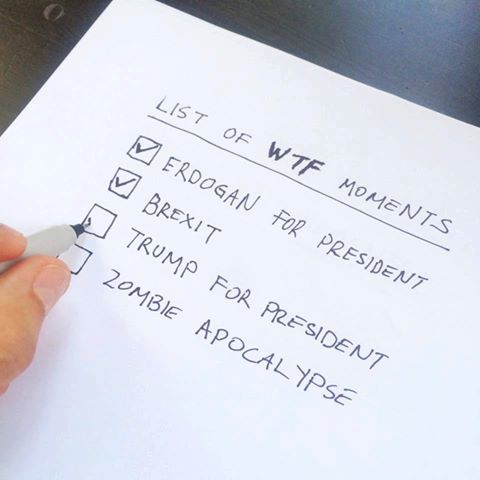 LIST OF WTF MOMENTS
ERDOGAN FOR PRESIDENT
BREXIT
TRUMP FOR PRESIDENT
ZOMBIE APOCALYPSE